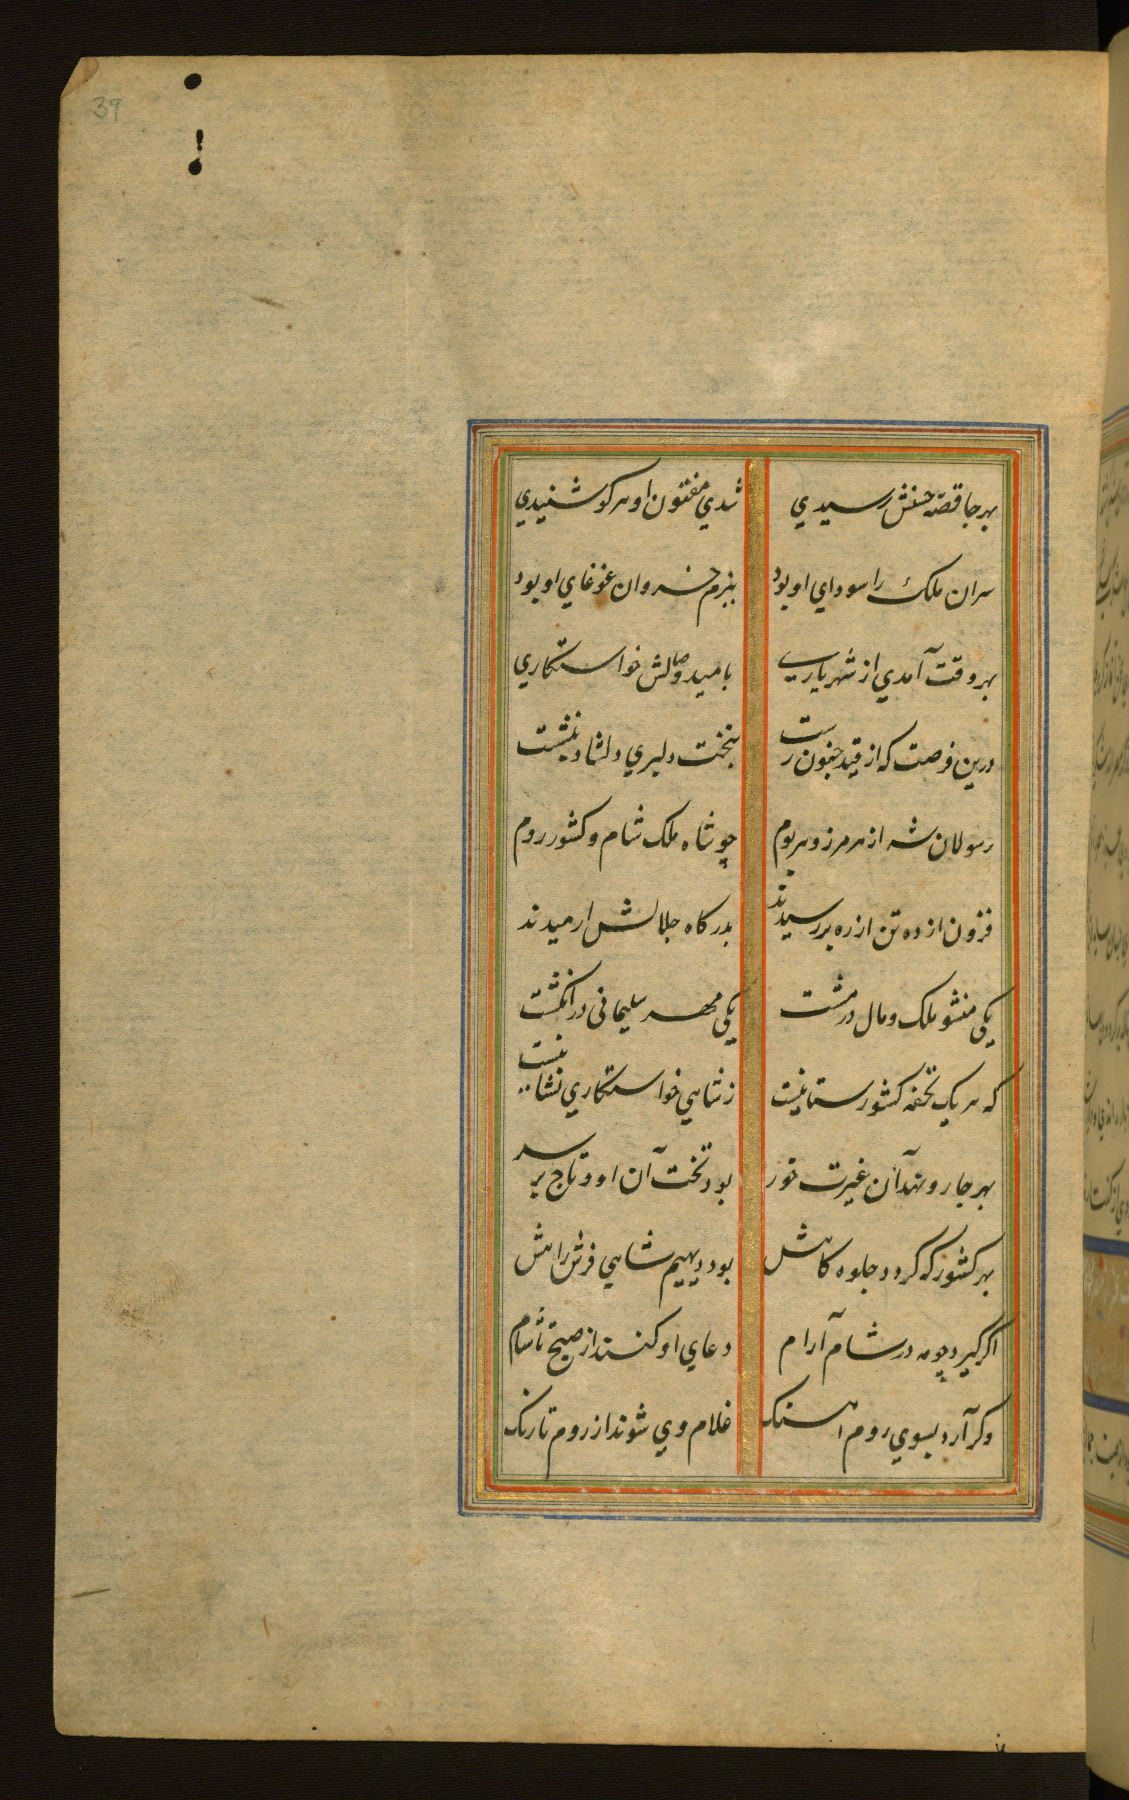 39
بهر جا قصهٔ حسنش رسیدي شدي مفتون او هر کو شنیدي
سران ملک را سوداي او بود ببزم خسروان غوغاي او بود
بهر وقت آمدي از شهریاري بامید وصالش خواستکاري
درین فرصت که از قید جنون رست بتخت دلبري دلشاد بنشست
رسولان شه از هر مرز و هر بوم چو شاه ملک شام و کشور روم
فزون از ده تن از ره در رسیدند بدرکاه جلالش ارمیدند
یکي منشور ملک و مال در مشت یکي مهر سلیمانی در انکشت
که هر یک تحفه کشورستانیست ز شاهي خواستکاري نشانیست
بهر جا رو نهد آن غیرت خور بود تخت آن او و تاج بر سر
بهر کشور که کردد جلوه کاهش بود دیهیم شاهي فرش راهش
اکر کیرد چو مه در شام آرام دعاي او کنند از صبح تا شام
وکر آرد بسوي روم آهنک غلام وي شوند از روم تا زنک